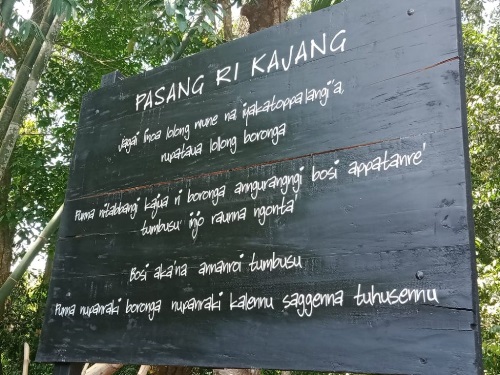 PASANG RI KAJANG
Jagai linoa lolong mune na iyakatoppalangi'a,
rupataua lollong boronga
Punna nitabbangi kajua ri boronga anngurangngi bosi appatanre'
tumbusu injo raunna ngonta'
Bosi aka'na annanroi tumbusu
Punna nupanraki boronga nupanraki kalennu saggenna tuhusennu